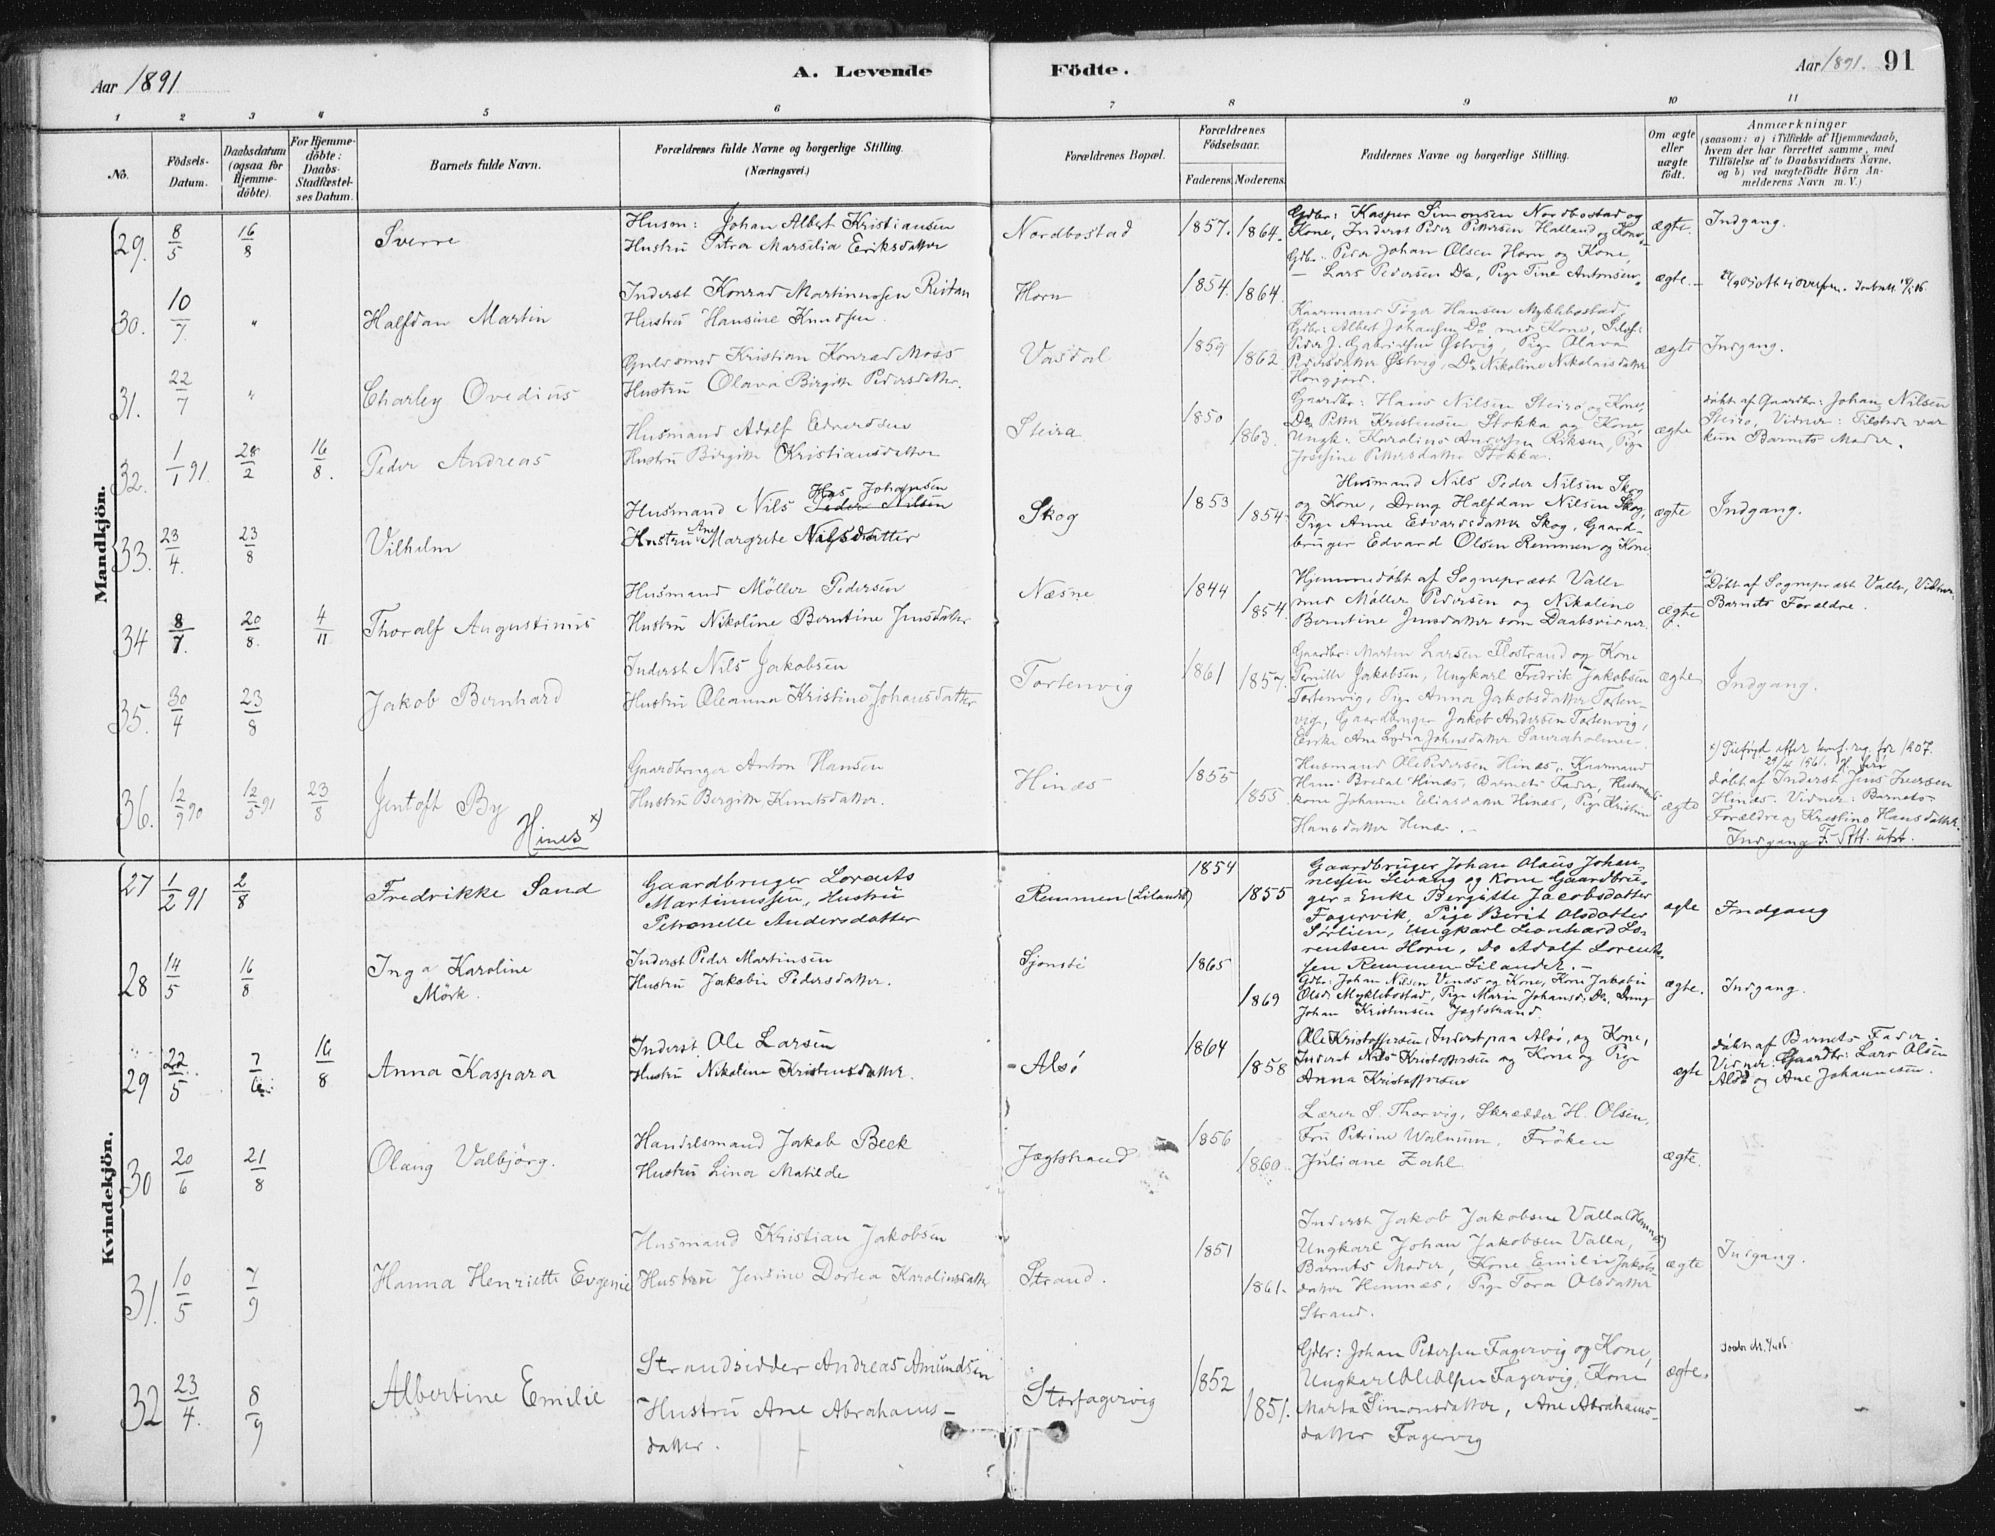 Aar 1891
A. Levende
Födte.
Aar 1891. 91
1 2 3 4 5 6 7 8 9 10 11
No.
Födsels-Datum.
Daabsdatum (ogsaa for Hjemme-döbte).
For Hjemme-döbte: Daabs-Stadfæstel-ses Datum.
Barnets fulde Navn.
Forældrenes fulde Navne og borgerlige Stilling.
(Næringsvei.)
Forældrenes Bopæl.
Forældrenes Födselsaar.
Faderens. Moderens.
Faddernes Navne og borgerlige Stilling.
Om ægte eller uægte födt.
Anmærkninger
(saasom: a) i Tilfælde af Hjemmedaab,
hvem der har forrettet samme, med
Tilföielse af to Daabsvidners Navne,
og b) ved uægtefödte Börn An-
melderens Navn m. V.)
Mandkjön.
29. 8/5 16/8 Sverre
Husm: Johan Albert Kristiansen
Hustru Petra Marselia Eriksdatter
Nordbostad 1857. 1864.
Gdbr: Kasper Simonsen Nordbostad og
Kone, Inderst Peder Pettersen Halland og Kone
Gdbr: Peder Johan Olsen Horn og Kone,
ægte. Indgang.
30. 10/7 " Halfdan Martin
Inderst Konrad Martinussen Ristan
Hustru Hansine Knudsen.
Horn 1854. 1864.
Lars Pedersen Do, Pige Tine Antonsen
ægte.
31. 22/7 " Charley Ovedius
Guldsmed Kristian Konrad Moss
Hustru Olava Birgitte Pedersdatter.
Vasdal 1859 1862
Kaarmand Töger Hansen Myklebostad,
Gdbr: Albert Johansen Do med Kone,
Peder J. Gabrielsen Østvig, Pige Olava
Pedersdatter Østvig, Do Nikoline Nikolaisdatter
ægte Indgang.
32. 1/1 91 28/2 16/8. Peder Andreas
Husmand Adolf Edvardsen
Hustru Birgitte Kristiansdatter
Steira 1850 1863.
Gaardbr: Hans Nilsen Steiro og Kone,
Do Petter Kristensen Stokka og Kone,
Ungk: Karolius Andersen Riksen, Pige
Josefine Pettersdatter Stokka.
ægte
döbt af Gaardbr: Johan Nilsen
Steiro, Vidner: Tilstede var
kun Barnets Moder.
33. 23/4. 23/8 Vilhelm
Husmand Nils Peder Nilsen Has Johansen
Hustru Ane Margrete Nilsdatter
Skog 1853 1854.
Husmand Nils Peder Nilsen Skog
og Kone, Dreng Halfdan Nilsen Skog,
Pige Anne Edvardsdatter Skog, Gaard-
bruger Edvard Olsen Remmen og Kone
ægte Indgang.
34 8/7. 20/8. 4/11 Thoralf Augustinus
Husmand Möller Pedersen
Hustru Nikoline Berntine Jensdatter
Næsne 1844 1854.
Hjemmedöbt af Sognepræst Valle
med Møller Pedersen og Nikoline
Berntine Jensdatter som Daabsvidner.
ægte.
Döbt af Sognepræst Valle, Vidner
Barnets Forældre.
35. 30/4 23/8 Jakob Bernhard
Inderst Nils Jakobsen
Hustru Oleanna Kristine Johansdatter
Tortenvig 1861 1857.
Gaardbr: Marten Larsen Flostrand og Kone
Pernille Jakobsen, Ungkarl Fredrik Jakobsen
Tortenvig, Pige Anna Jakobsdatter Torten-
vig, Gaardbruger Jakob Andersen Tortenvig,
Enke Ane Lydia Johnsdatter
ægte Indgang.
36. 12/9 90 12/5 91 23/8 Jentoft By
Hines x)
Gaardbruger Anton Hansen
Hustru Bergitte Knutsdatter.
Hinæs 1855 1855
Husmand Ole Pedersen Hinæs, Kaarmand
Hans Bredal Hinæs, Barnets Fader, Husmands
kone Johanne Eliasdatter Hinæs, Pige Kristine
Hansdatter Hinæs.
ægte
x) Tilføyd etter konf. reg. for 1907.
29/4 1961.
döbt af Inderst Jens Iversen
Hinæs. Vidner: Barnets
Forældre og Kristine Hansdatter.
Indgang
Kvindekjön.
27 1/2 91 2/8 Fredrikke Sand
Gaardbruger Lorents
Martinussen, Hustru
Petronelle Andersdatter
Remmen (Lilandet) 1854 1855
Gaardbruger Johan Olaus Johan-
nessen Levang og Kone Gaardbru-
ger-Enke Bergitte Jacobsdatter
Fagervik, Pige Berit Olsdatter
Sørlien, Ungkarl Leonhard Lo-
rentsen Horn, Do Adolf Lorent-
sen Remmen Lilandet.
ægte Indgang
28 14/5 16/8 Inga Karoline
Mörk.
Inderst Peder Martinsen
Hustru Jakobie Pedersdatter.
Sjonstö 1865 1869
Gdbr: Johan Nilsen Vinæs og Kone, Kone Jakobie
Olsd Myklebostad, Pige Marie Johansd: Do, Dreng
Johan Kristensen Jægtstrand
ægte. Indgang.
29 22/5 7/6 16/8 Anna Kaspara
Inderst Ole Larsen
Hustru Nikoline Kristensdatter
Alsö 1864 1858
Ole Kristoffersen, Inderst paa Alsö, og Kone,
Inderst Nils Kristoffersen og Kone og Pige
Anna Kristoffersen
ægte
döbt af Barnets Fader.
Vidner: Gaardbr: Lars Olsen
Alsö og Ane Johannesen.
30 20/6 21/8 Olaug Valbjörg.
Handelsmand Jakob Beck
Hustru Lina Matilde
Jægtstrand 1856 1860
Lærer S. Thorvig, Skrædder H. Olsen,
Fru Petrine Walnum, Fröken
Juliane Zahl
ægte.
31. 10/5 7/9 Hanna Henriette Evgenie
Husmand Kristian Jakobsen
Hustru Jensine Dortea Karolinsdatter
Strand. 1851 1861.
Inderst Jakob Jakobsen Valla
Ungkarl Johan Jakobsen Valla,
Barnets Moder, Kone Emilie Jakobs-
datter Hemnæs, Pige Tora Olsdatter
Strand.
ægte Indgang.
32 23/4. 8/9 Albertine Emilie
Strandsidder Andreas Amundsen
Hustru Ane Abrahams-
datter.
Storfagervig 1852 1851.
Gdbr: Johan Pedersen Fagervig og Kone,
Ungkarl Ole Olsen Fagervig, Kone
Marta Simonsdatter, Ane Abrahams-
datter Fagervig
ægte.